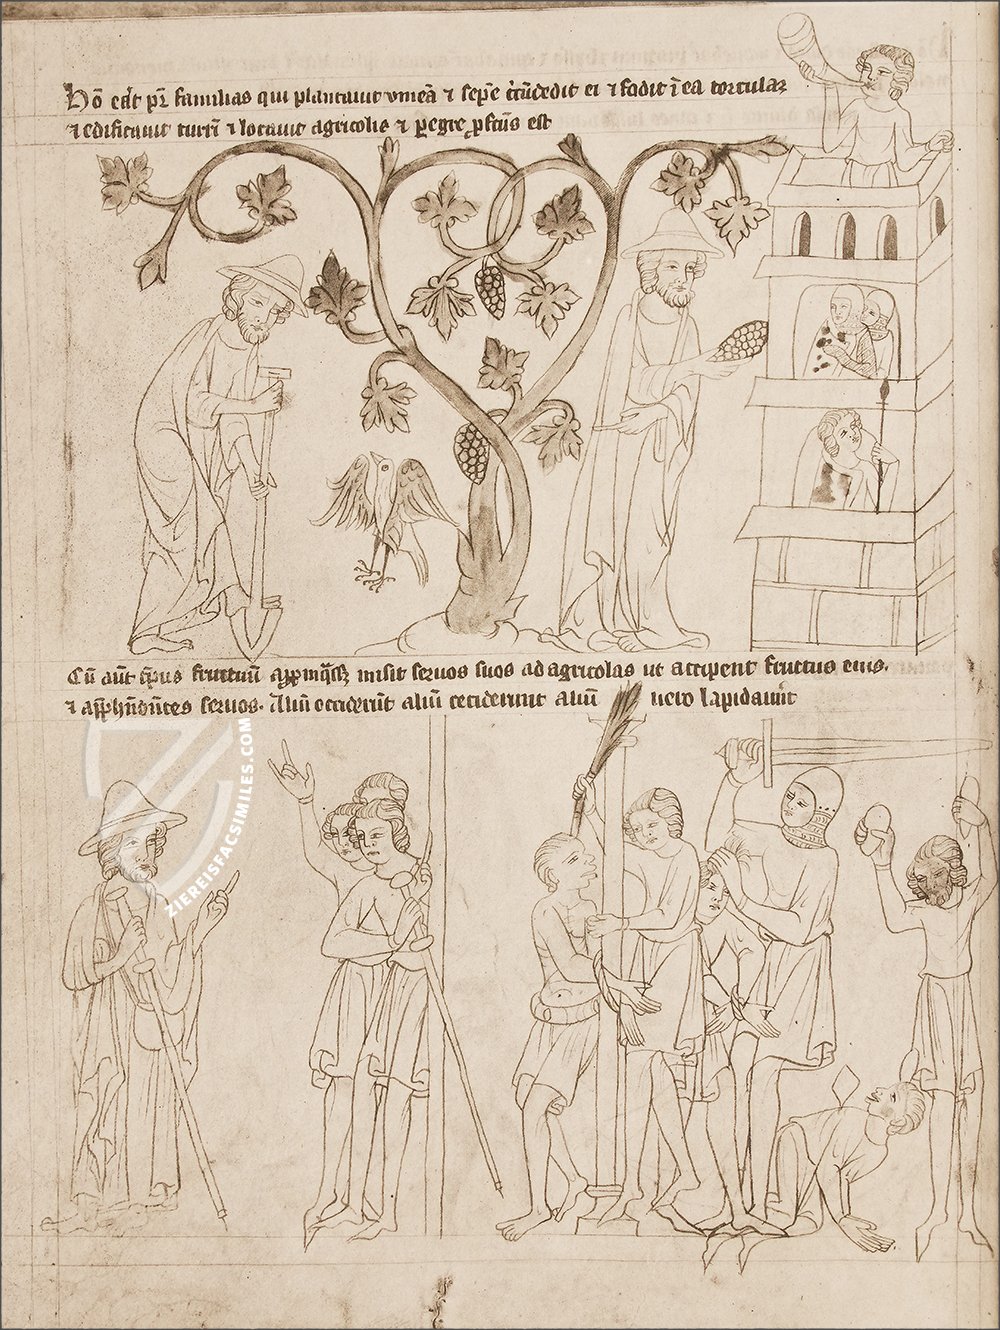 Hō erat pr̄ familias qui plantauit vineā ⁊ sepē c̄cūdedit ei ⁊ fodit ī ea torcular
⁊ edificauit turrī ⁊ locauit agricolis ⁊ pegre pfctūs est
Cū aūt tp̄us fructuū missit seruos suos ad agricolas ut accipent fructus eius.
⁊ seruos. Aliū occiderūt aliū ceciderunt aliū uero lapidauūt
ZIEREISFACSIMILES.COM